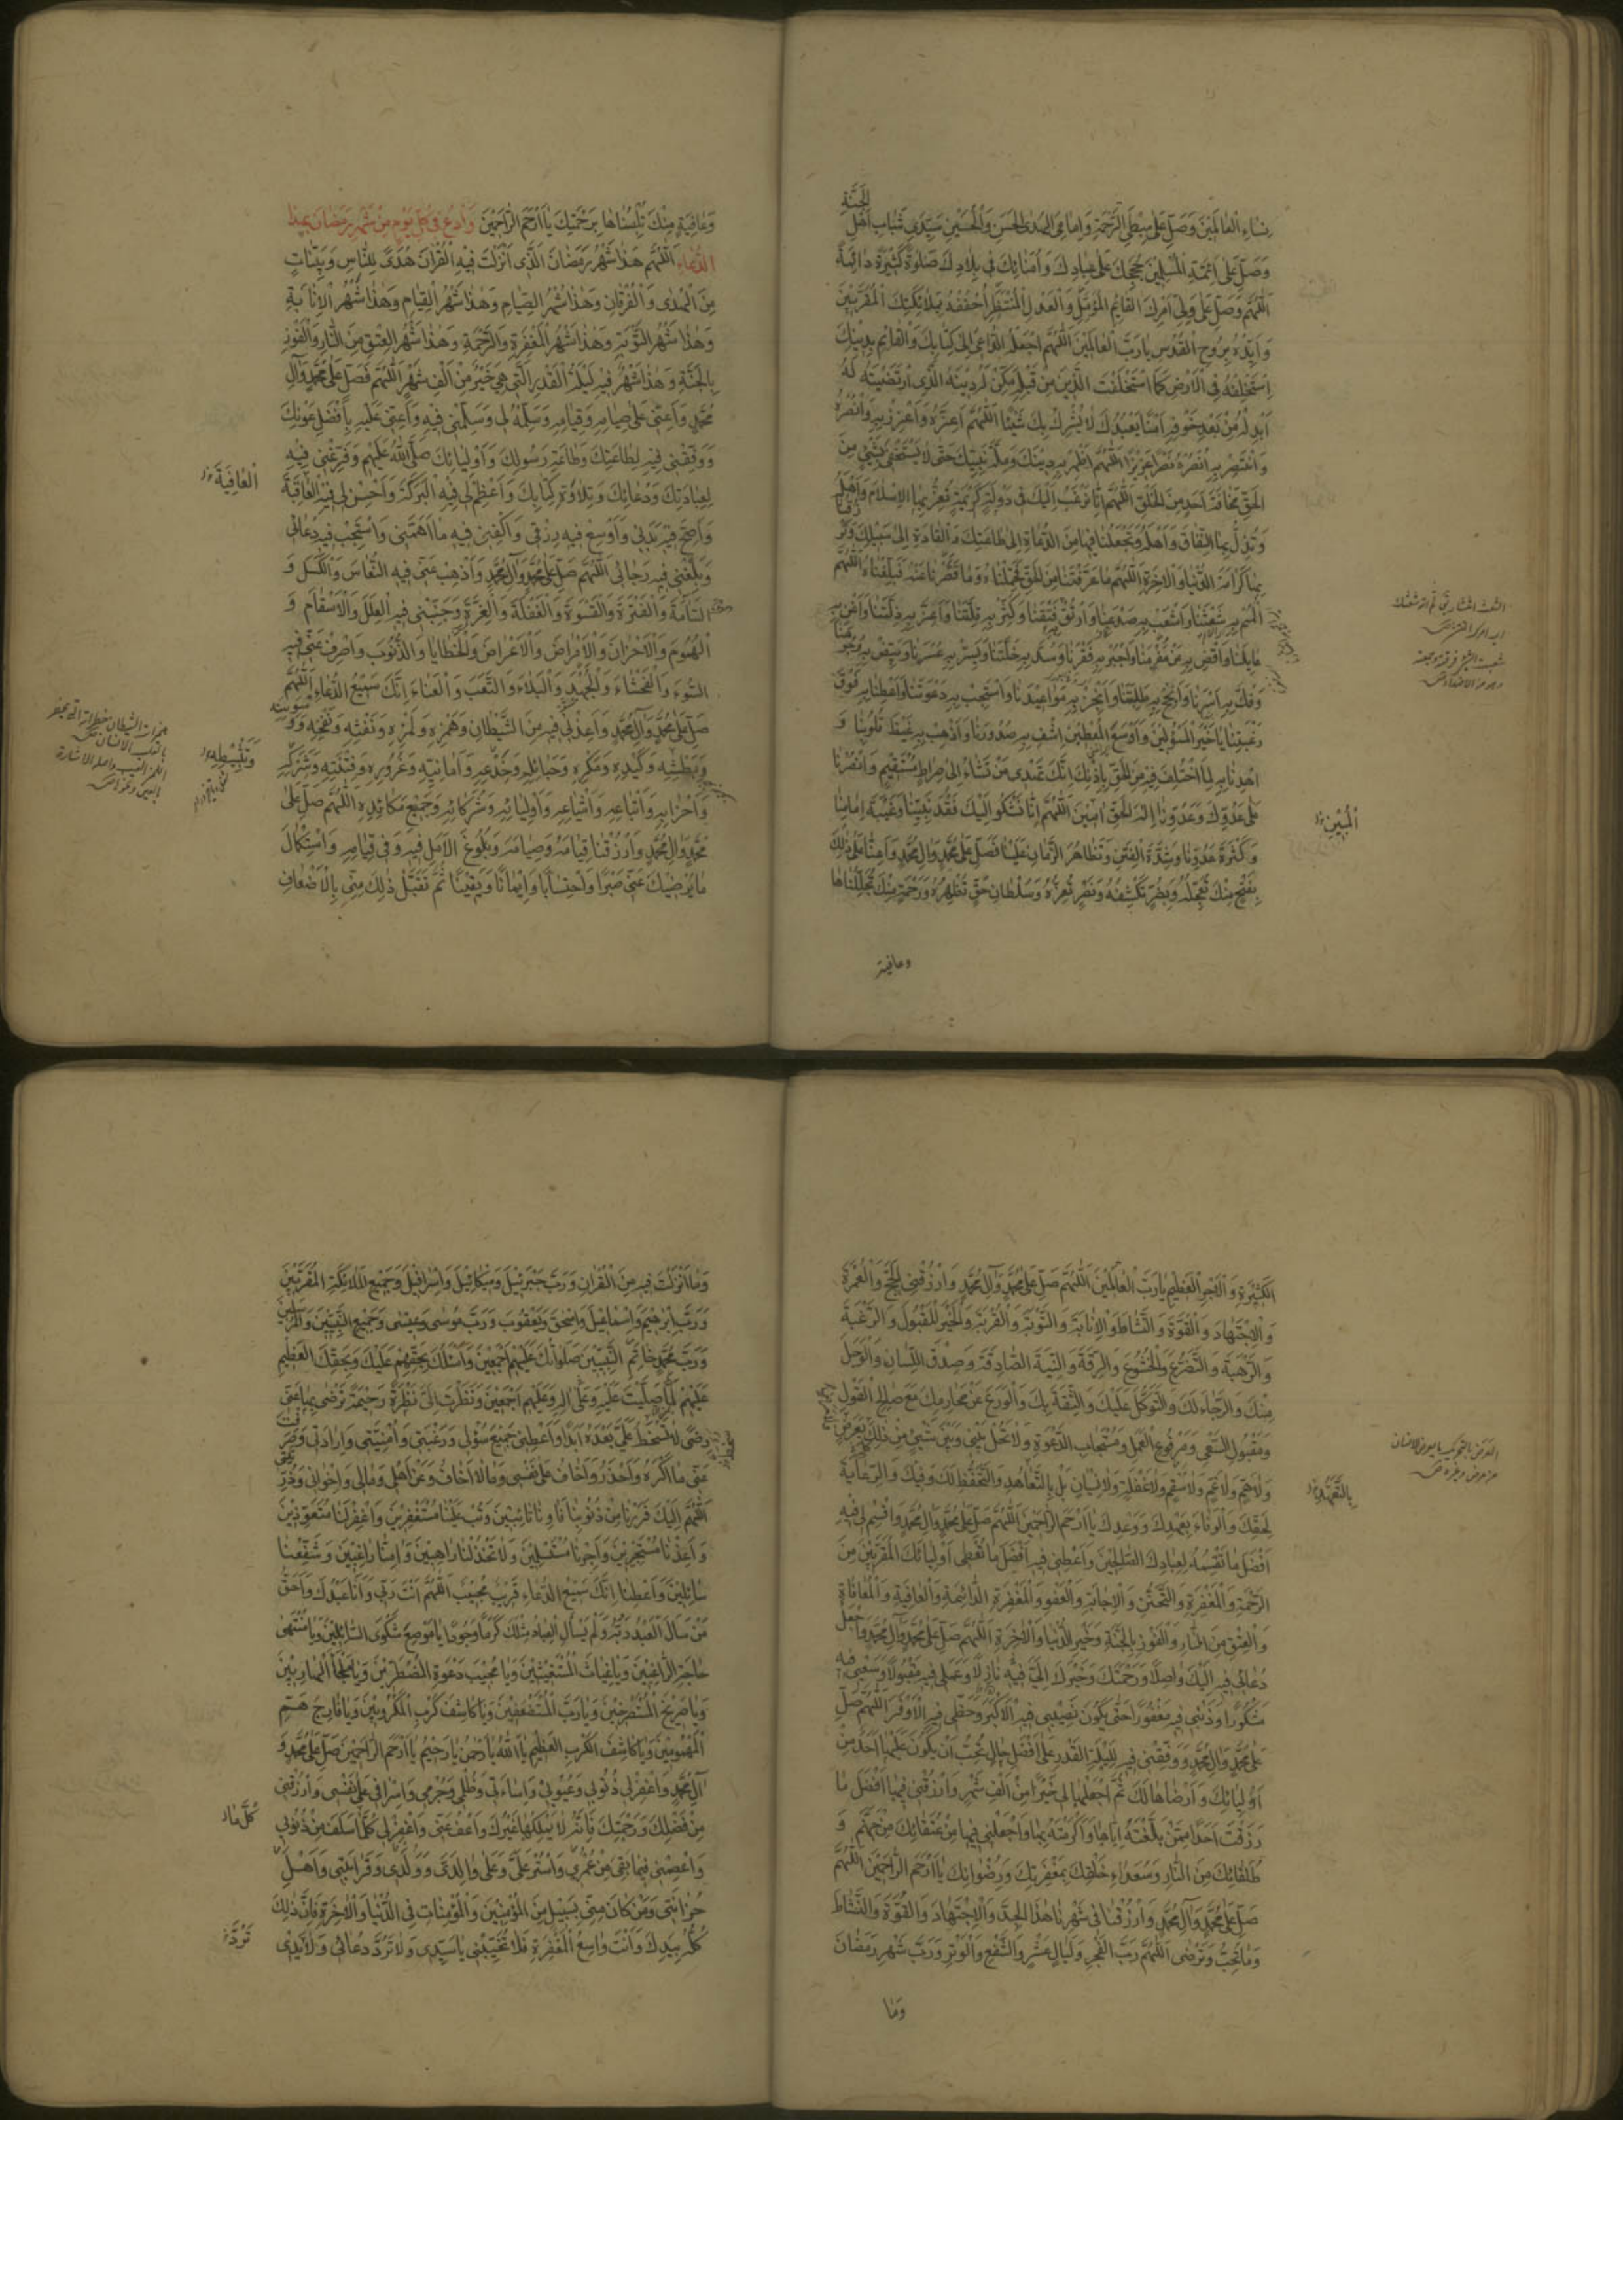 الجنة
نساء العالمين وصل على سبطي الرحمة وامامي الهدى الحسن والحسين سيدي شباب اهل
وصل على ائمة المسلمين حججك على عبادك وامنائك في بلادك صلوة كثيرة دائمة
اللهم وصل على ولي امرك القائم المؤمل والعدل المنتظر احففه بملائكتك المقربين
وايده بروح القدس يا رب العالمين اللهم اجعله الداعي الى كتابك والقائم بدينك
استخلفه في الارض كما استخلفت الذين من قبله مكن له دينه الذي ارتضيته له
ابدله من بعد خوفه امنا يعبدك لا يشرك بك شيئا اللهم اعزه واعزز به وانصره
وانتصر به انصره نصرا عزيزا اللهم اظهر به دينك وملة نبيك حتى لا يستخفي بشيء من
الحق مخافة احد من الخلق اللهم انا نرغب اليك في دولة كريمة تعز بها الاسلام واهله
وتذل بها النفاق واهله وتجعلنا فيها من الدعاة الى طاعتك والقادة الى سبيلك وترزقنا
بها كرامة الدنيا والاخرة اللهم ما عرفتنا من الحق فحملناه وما قصرنا عنه فبلغناه اللهم
المم به شعثنا واشعب به صدعنا وارتق به فتقنا وكثر به قلتنا واعز به ذلتنا واغن به
عايلنا واقض به عن مغرمنا واجبر به فقرنا وسد به خلتنا ويسر به عسرنا وبيض به وجوهنا
وفك به اسرنا وانجح به طلبتنا وانجز به مواعيدنا واستجب به دعوتنا واعطنا به فوق
رغبتنا يا خير المسؤلين واوسع المعطين اشف به صدورنا واذهب به غيظ قلوبنا و
اهدنا به لما اختلف فيه من الحق باذنك انك تهدي من تشاء الى صراط مستقيم وانصرنا
على عدوك وعدونا اله الحق امين اللهم انا نشكو اليك فقد نبينا وغيبة امامنا
وكثرة عدونا وشدة الفتن وتظاهر الزمان علينا فصل على محمد وال محمد واعنا على ذلك
بفتح منك تعجله وبضر تكشفه ونصر تعزه وسلطان حق تظهره ورحمة منك تجللناها
وعافية
المبين
وعافية منك تلبسناها برحمتك يا ارحم الراحمين وادع في كل يوم من شهر رمضان بهذا
الدعاء اللهم هذا شهر رمضان الذي انزلت فيه القران هدى للناس وبينات
من الهدى والفرقان وهذا شهر الصيام وهذا شهر القيام وهذا شهر الانابة
وهذا شهر التوبة وهذا شهر المغفرة والرحمة وهذا شهر العتق من النار والفوز
بالجنة وهذا شهر فيه ليلة القدر التي هي خير من الف شهر اللهم فصل على محمد وآل
محمد واعني على صيامه وقيامه وسلمه لي وسلمني فيه واعني عليه بافضل عونك
ووفقني فيه لطاعتك وطاعة رسولك واوليائك صلى الله عليهم وفرغني فيه
لعبادتك ودعائك وتلاوة كتابك واعظم لي فيه البركة واحسن لي فيه العاقبة
واصح فيه بدني واوسع فيه رزقي واكفني فيه ما اهمني واستجب فيه دعائي
وبلغني فيه رجائي اللهم صل على محمد وآل محمد واذهب عني فيه النعاس والكسل و
السامة والفترة والقسوة والغفلة والغرة وجنبني فيه العلل والاسقام و
الهموم والاحزان والامراض والاعراض والخطايا والذنوب واصرف عني فيه
السوء والفحشاء والجهد والبلاء والتعب والعناء انك سميع الدعاء اللهم
صل على محمد وآل محمد واعذني فيه من الشيطان وهمزه ولمزه ونفثه ونفخه ووسوسته
وبطشه وكيده ومكره وحبائله وخدعه وامانيه وغروره وفتنته وشركه
واحزابه واتباعه واشياعه واوليائه وشركائه وجميع مكائده اللهم صل على
محمد وال محمد وارزقنا قيامه وصيامه وبلوغ الامل فيه وفي قيامه واستكمال
ما يرضيك عني صبرا واحتسابا وايمانا ويقينا ثم تقبل ذلك مني بالاضعاف
العافية
وتثبيطه
الكثيرة والاجر العظيم يا رب العالمين اللهم صل على محمد وآل محمد وارزقني الحج والعمرة
والاجتهاد والقوة والنشاط والانابة والتوبة والقربة والخير المقبول والرغبة
والرهبة والتضرع والخشوع والرقة والنية الصادقة وصدق اللسان والوجل
منك والرجاء لك والتوكل عليك والثقة بك والورع عن محارمك مع صالح القول
ومقبول السعي ومرفوع العمل ومستجاب الدعوة ولا تحل بيني وبين شيء من ذلك بعرض
ولا هم ولا غم ولا سقم ولا غفلة ولا نسيان بل بالتعاهد والتحفظ لك وفيك والرعاية
لحقك والوفاء بعهدك ووعدك يا ارحم الراحمين اللهم صل على محمد وال محمد واقسم لي فيه
افضل ما تقسمه لعبادك الصالحين واعطني فيه افضل ما تعطي اوليائك المقربين من
الرحمة والمغفرة والتحنن والاجابة والعفو والمغفرة الدائمة والعافية والمعافاة
والعتق من النار والفوز بالجنة وخير الدنيا والاخرة اللهم صل على محمد وآل محمد واجعل
دعائي فيه اليك واصلا ورحمتك وخيرك الي فيه نازلا وعملي فيه مقبولا وسعيي فيه
مشكورا وذنبي فيه مغفورا حتى يكون نصيبي فيه الاكبر وحظي فيه الاوفر اللهم صل
على محمد وال محمد ووفقني فيه لليلة القدر على افضل حال تحب ان يكون عليها احد من
اوليائك وارضاها لك ثم اجعلها لي خيرا من الف شهر وارزقني فيها افضل ما
رزقت احدا ممن بلغته اياها واكرمته بها واجعلني فيها من عتقائك من جهنم و
طلقائك من النار وسعداء خلقك بمغفرتك ورضوانك يا ارحم الراحمين اللهم
صل على محمد وآل محمد وارزقنا في شهرنا هذا الجد والاجتهاد والقوة والنشاط
وما تحب وترضى اللهم رب الفجر وليال عشر والشفع والوتر ورب شهر رمضان
وما
بالتعهد
وما انزلت فيه من القران ورب جبرئيل وميكائيل واسرافيل وجميع الملائكة المقربين
ورب ابرهيم واسمعيل واسحق ويعقوب ورب موسى وعيسى وجميع النبيين والمرسلين
ورب محمد خاتم النبيين صلواتك عليهم اجمعين واسئلك بحقهم عليك وبحقك العظيم
عليهم لما صليت عليه وعلى اله وعليهم اجمعين ونظرت الي نظرة رحيمة ترضى بها عني
رضى لا تسخط علي بعده ابدا واعطيتني جميع سؤلي ورغبتي وامنيتي وارادتي وصرفت
عني ما اكره واحذر واخاف على نفسي وما لا اخاف وعن اهلي ومالي واخواني وذريتي
اللهم اليك فررنا من ذنوبنا فاونا تائبين وتب علينا مستغفرين واغفر لنا متعوذين
واعذنا مستجيرين واجرنا مستسلمين ولا تخذلنا راهبين وامنا راغبين وشفعنا
سائلين واعطنا انك سميع الدعاء قريب مجيب اللهم انت ربي وانا عبدك واحق
من سال العبد ربه ولم يسال العباد مثلك كرما وجودا يا موضع شكوى السائلين ويا منتهى
حاجة الراغبين ويا غياث المستغيثين ويا مجيب دعوة المضطرين ويا ملجأ الهاربين
ويا صريخ المستصرخين ويا رب المستضعفين ويا كاشف كرب المكروبين ويا فارج هم
المهمومين ويا كاشف الكرب العظيم يا الله يا رحمن يا رحيم يا ارحم الراحمين صل على محمد و
آل محمد واغفر لي ذنوبي وعيوبي واساءتي وظلمي وجرمي واسرافي على نفسي وارزقني
من فضلك ورحمتك فانه لا يملكها غيرك واعف عني واغفر لي كل ما سلف من ذنوبي
واعصمني فيما بقي من عمري واستر علي وعلى والدي وولدي وقرابتي واهل
حزانتي ومن كان مني بسبيل من المؤمنين والمؤمنات في الدنيا والاخرة فان ذلك
كله بيدك وانت واسع المغفرة فلا تخيبني يا سيدي ولا ترد دعائي ولا يدي
ترد